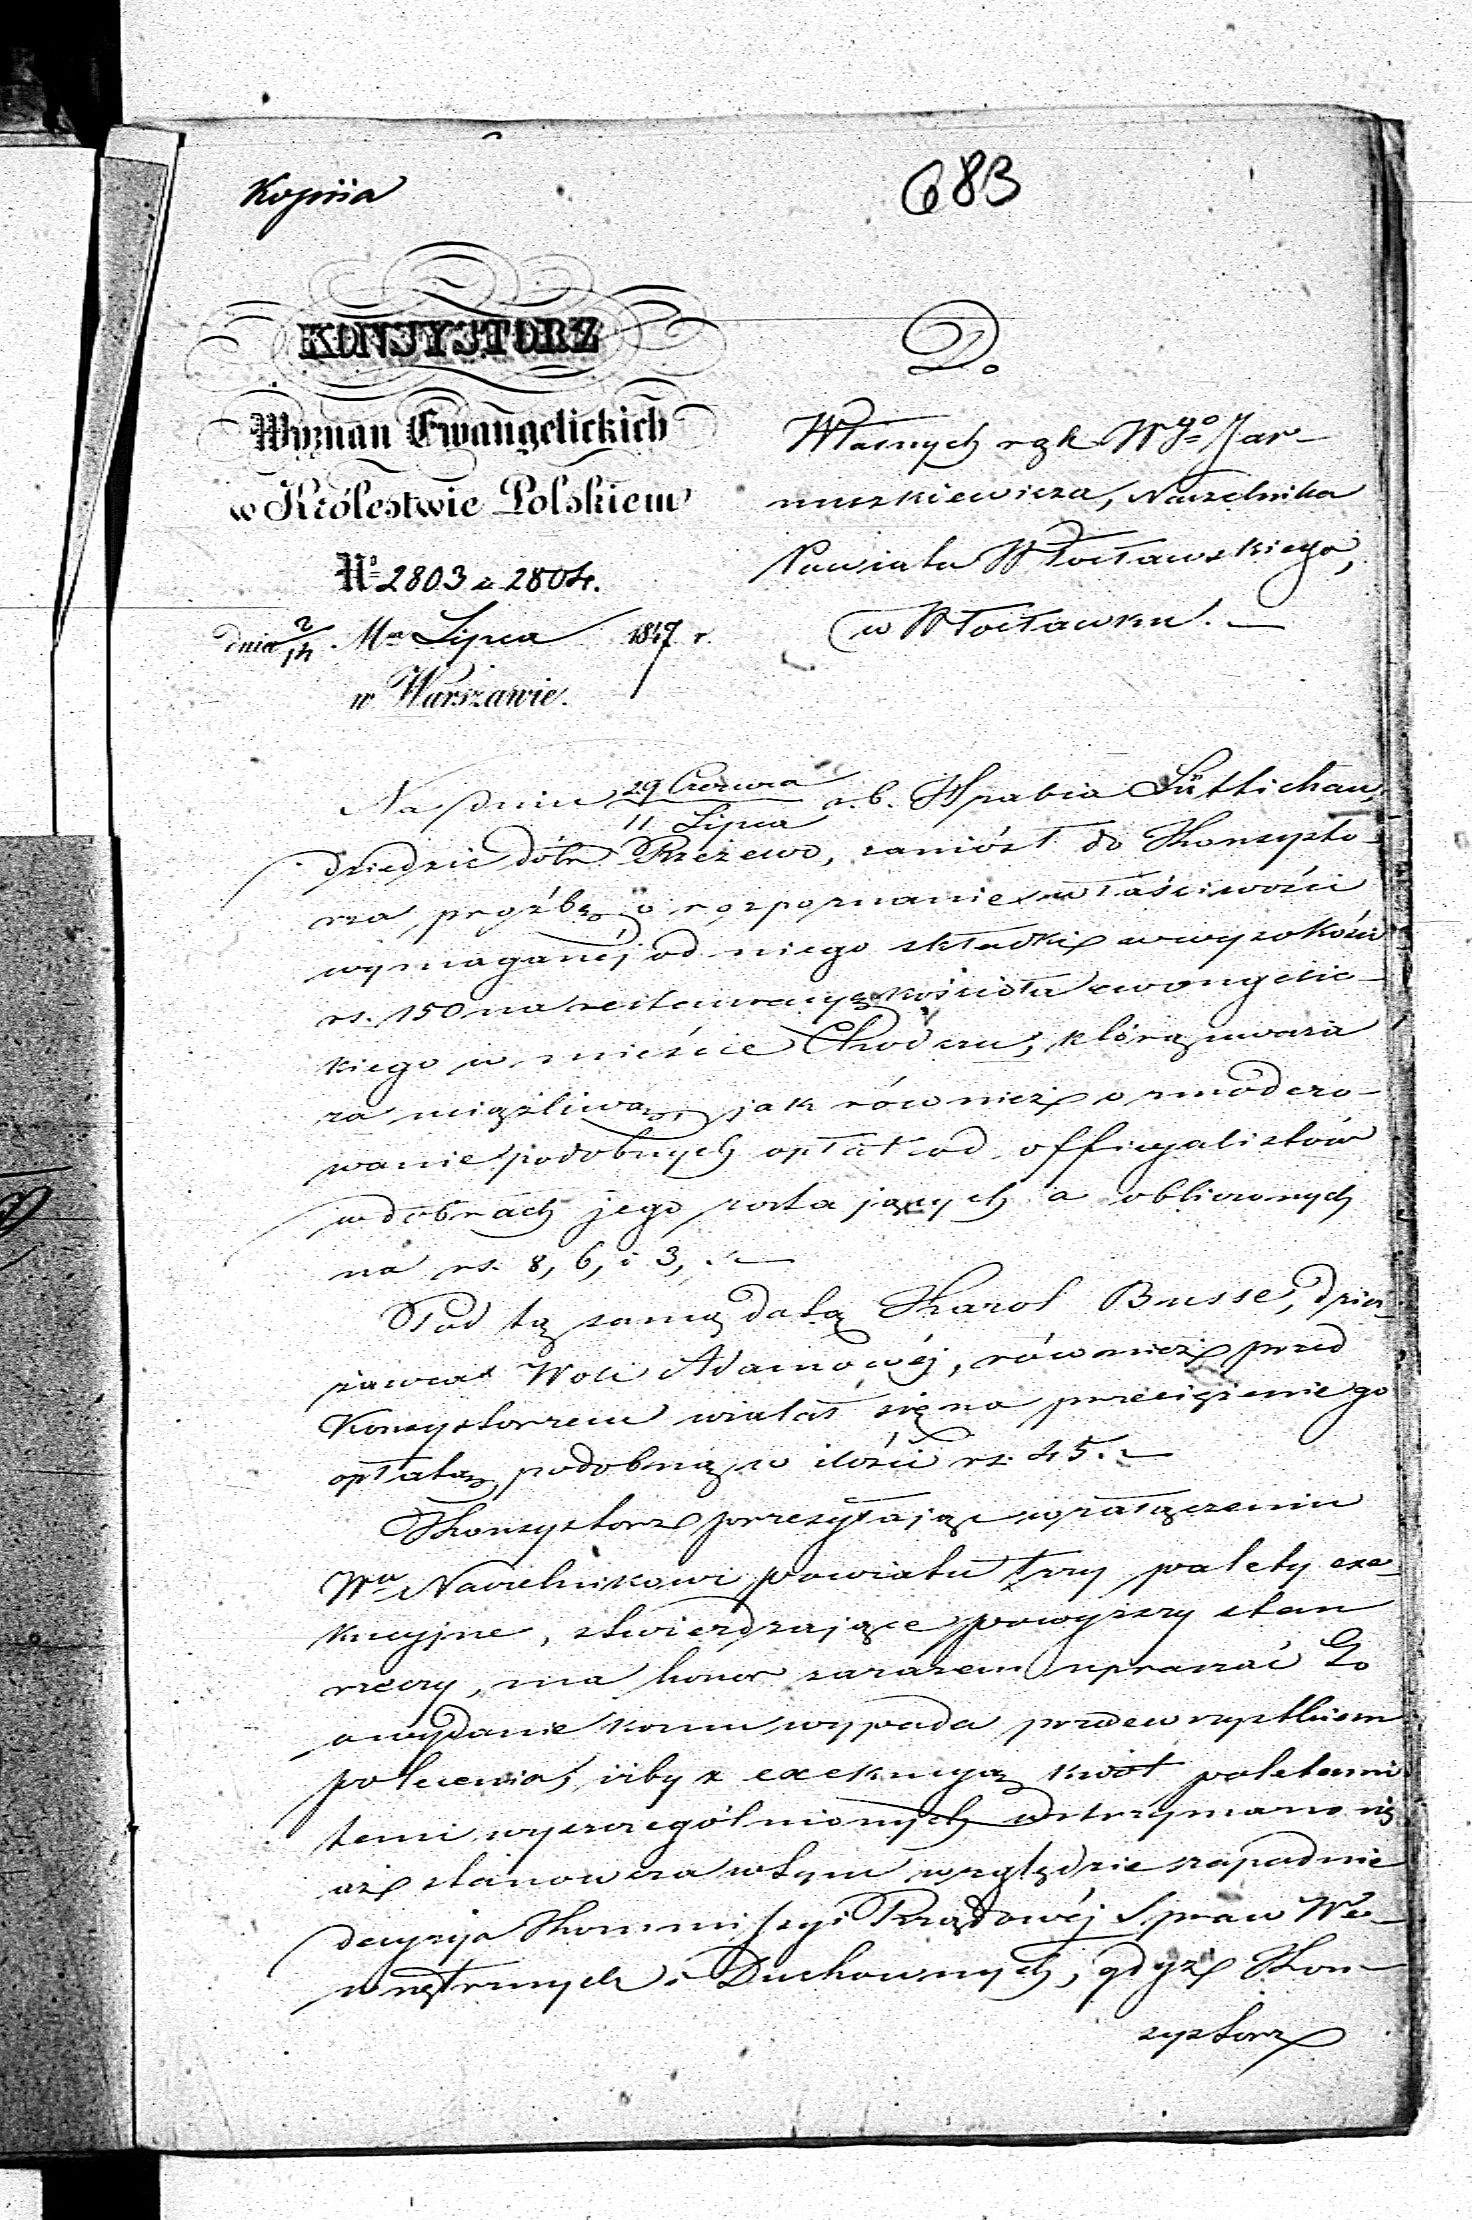 Kopiia
683
KONSYSTORZ
Wyznań Ewangelickich
w Królestwie Polskiem
No 2803 a 2804.
dnia 2/14 Ma Lipca 1847 r.
w Warszawie.
Do
Własnych rąk Wgo Jar-
muszkiewicza, Naczelnika
Powiatu Włocławskiego,
w Włocławku. —
Na dniu 29 Czerwca / 11 Lipca r. b. Hrabia Lüttichau,
dziedzic dóbr zaniósł do Konsysto-
rza, proźbę o rozpoznanie właściwości
wymaganéj od niego składki w wysokości
rs. 150 na restauracyą kościoła ewangelic-
kiego w mieście Chodczu, którą uważa
za uciążliwą, jak również o zmodero-
wanie podobnych opłat od officyalistów
w dobrach jego zostających a obliczonych
na rs. 8, 6, i 3, . —
Pod tą samą datą Karol Busse, dzier-
żawca Woli Adamowéj, również przed
Konsystorzem użalał się na przeciążenie go
opłatą podobną w ilości rs. 45. —
Konsystorz przesyłając w załączeniu
Wu Naczelnikowi powiatu trzy palety exe-
kucyjne, stwierdzające powyższy stan
rzeczy, ma honor zarazem upraszać Go
o wydanie komu wypada przedewszystkiem
polecenia, iżby z exekucyą kwot paletami
temi wyszczególnionych wstrzymano się
aż stanowcza w tym względzie zapadnie
decyzija Kommissyi Rządowéj Spraw We-
wnętrznych i Duchownych, gdyż Kon-
systorz